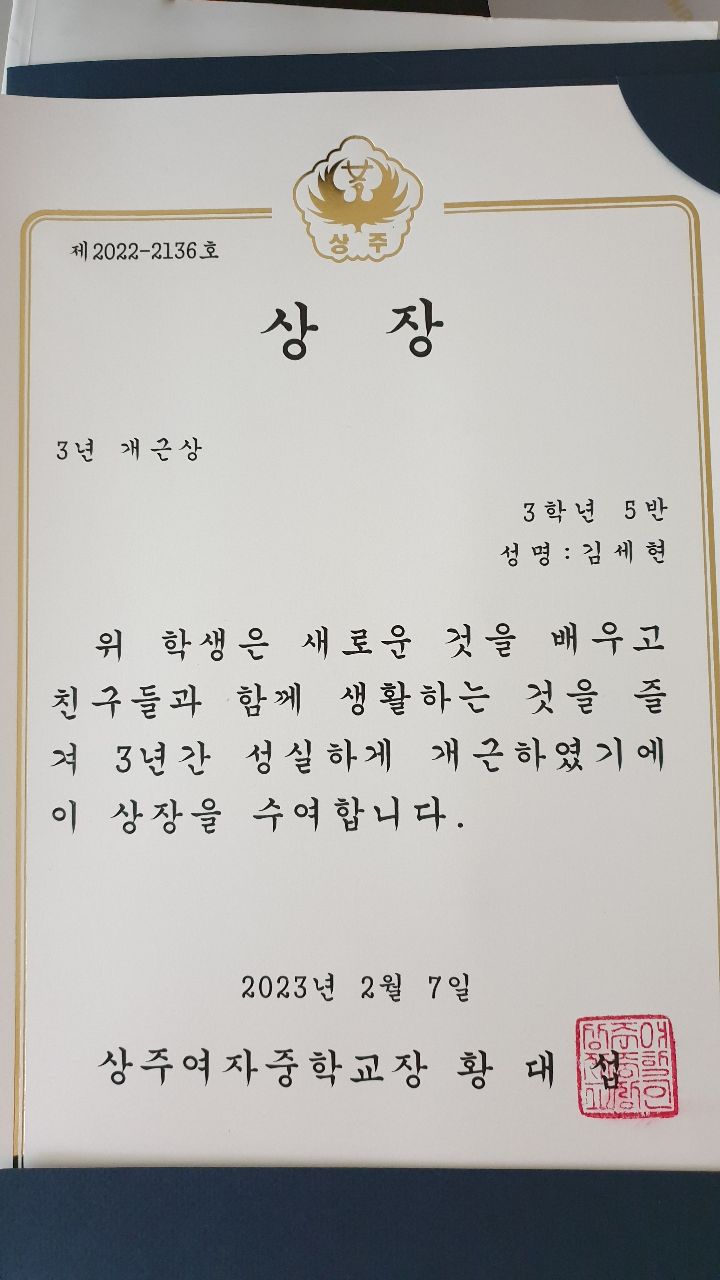 상주
제2022-2136호
상 장
3년 개근상
3학년 5반
성명:김세현
위 학생은 새로운 것을 배우고
친구들과 함께 생활하는 것을 즐
겨 3년간 성실하게 개근하였기에
이 상장을 수여합니다.
2023년 2월 7일
상주여자중학교장 황 대 섭